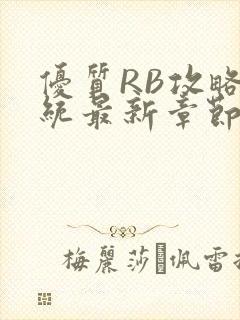 優質RB攻略
統最新章節
梅麗莎·佩雷